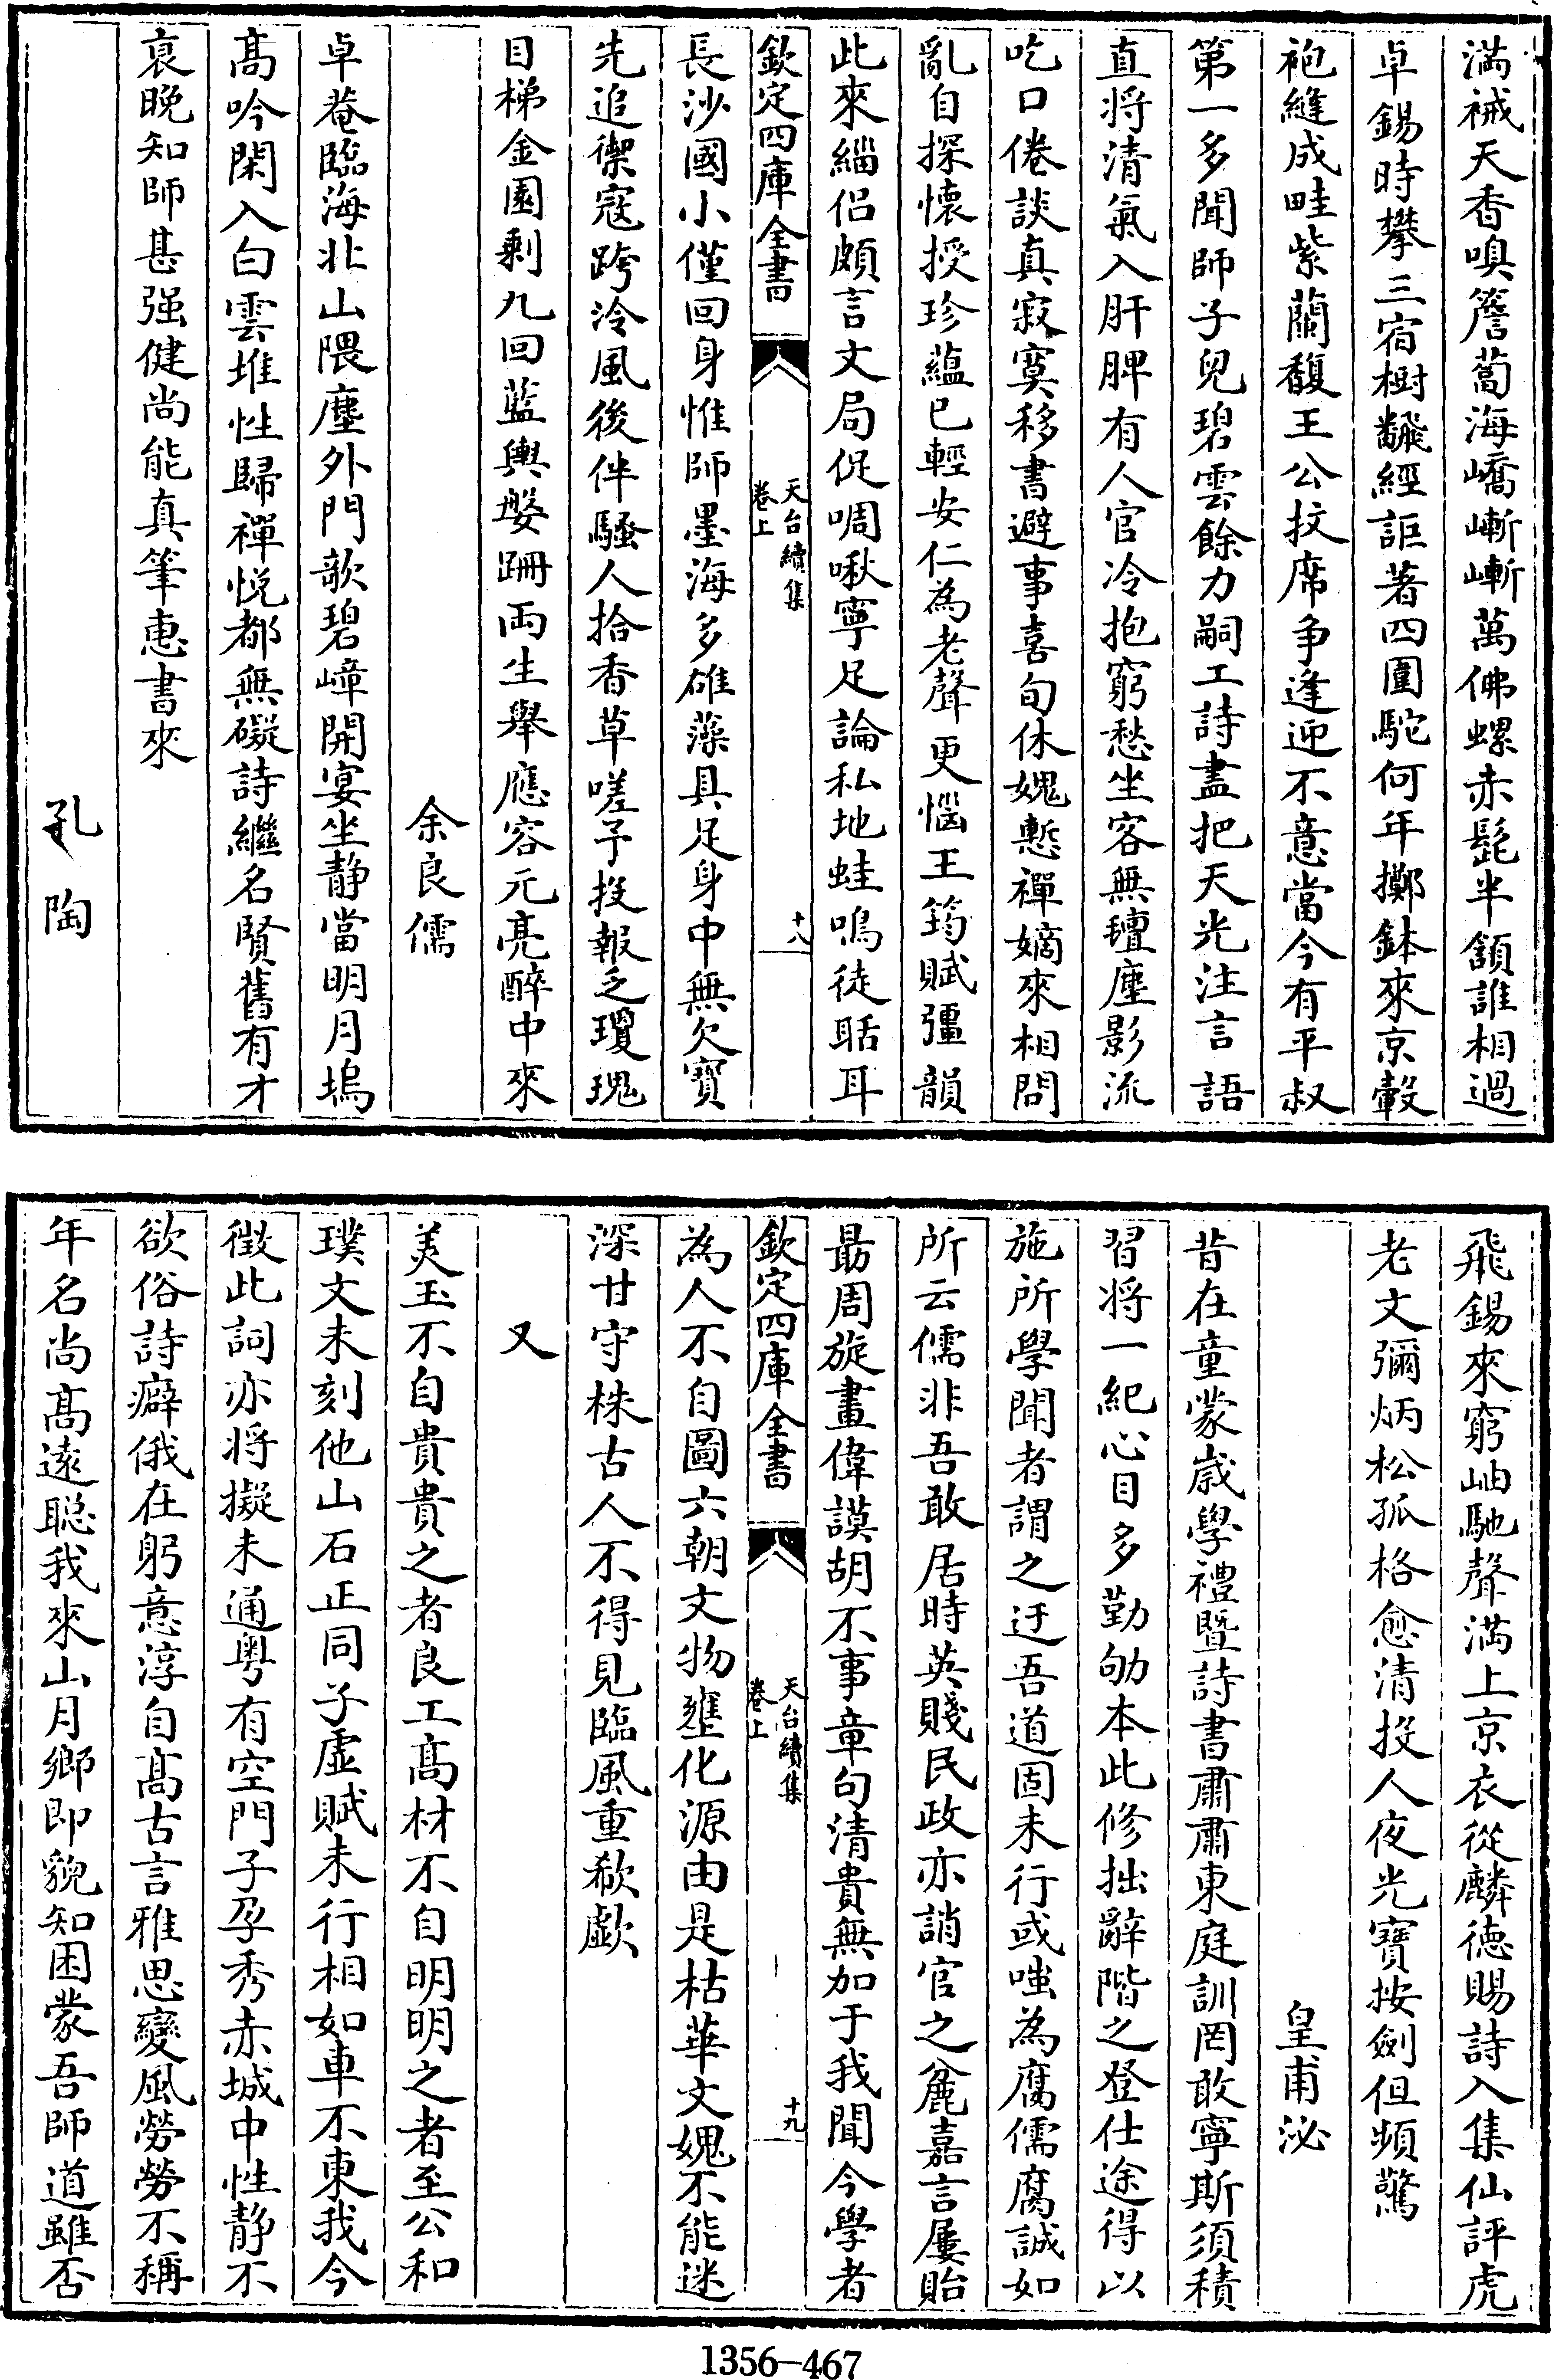 滿祴天香嗅簷蔔海嶠嶄嶄萬佛螺赤髭半頷誰相過
卓錫時攀三宿樹飜經詎著四圍駝何年擲鉢來京轂
袍縫成畦紫蘭馥王公抆席争逢迎不意當今有平叔
第一多聞師子兒碧雲餘力嗣工詩盡把天光注言語
直将清氣入肝脾有人官冷抱窮愁坐客無氊塵影流
吃口倦談真寂寞移書避事喜旬休媿慙禪嫡來相問
亂自探懷授珍藴已輕安仁為老聲更惱王筠賦彊韻
此來緇侣頗言文局促啁啾寧足論私地蛙鳴徒聒耳
欽定四庫全書
天台續集
卷上
十八
長沙國小僅回身惟師墨海多雄藻具足身中無欠寳
先追禦寇跨泠風後伴騷人拾香草嗟予投報乏瓊瑰
目梯金園剩九回藍輿媻跚両生舉應容元亮醉中來
余良儒
卓菴臨海北山隈塵外門歌碧嶂開宴坐静當明月塢
髙吟閑入白雲堆性歸禪悦都無礙詩繼名賢舊有才
衰晚知師甚强健尚能真筆惠書來
孔陶
飛錫來窮岫馳聲滿上京衣從麟德賜詩入集仙評虎
老文彌炳松孤格愈清投人夜光寳按劍但頻驚
皇甫泌
昔在童蒙嵗學禮暨詩書肅肅東庭訓罔敢寧斯須積
習将一紀心目多勤劬本此修拙辭階之登仕途得以
施所學聞者謂之迂吾道固未行或嗤為腐儒腐誠如
所云儒非吾敢居時英賤民政亦誚官之麄嘉言屢貽
朂周旋畫偉謨胡不事章句清貴無加于我聞今學者
欽定四庫全書
天台續集
卷上
十九
為人不自圖六朝文物壅化源由是枯華文媿不能迷
深甘守株古人不得見臨風重欷歔
又
美玉不自貴貴之者良工髙材不自明明之者至公和
璞文未刻他山石正同子虚賦未行相如車不東我今
徴此詞亦将擬未通粤有空門子孕秀赤城中性静不
欲俗詩癖俄在躬意淳自髙古言雅思變風勞勞不稱
年名尚髙遠聡我來山月鄉即貌知困蒙吾師道雖否
1356—467